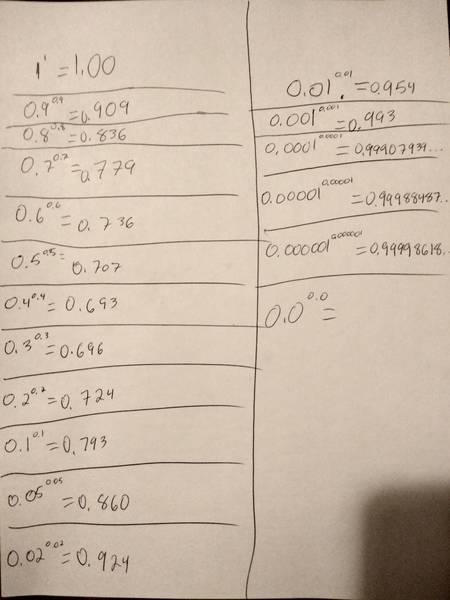 1¹ = 1.00
0.9^0.9 = 0.909
0.8^0.8 = 0.836
0.7^0.7 = 0.779
0.6^0.6 = 0.736
0.5^0.5 = 0.707
0.4^0.4 = 0.693
0.3^0.3 = 0.696
0.2^0.2 = 0.724
0.1^0.1 = 0.793
0.05^0.05 = 0.860
0.02^0.02 = 0.924
0.01^0.01 = 0.954
0.001^0.001 = 0.993
0.0001^0.0001 = 0.99907939...
0.00001^0.00001 = 0.99988487..
0.000001^0.000001 = 0.99998618...
0.0^0.0 =